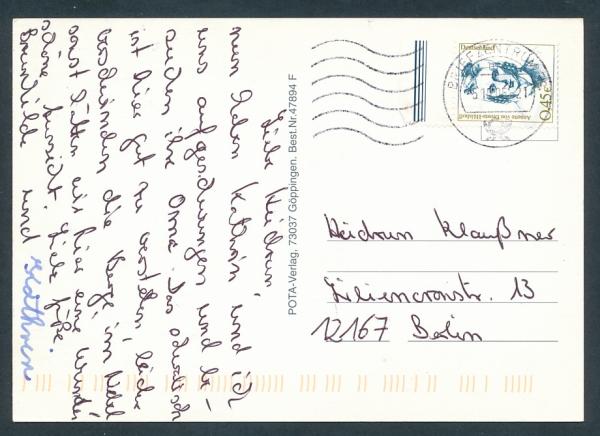 Liebe Heidrun,
nun haben Kathrin und ich
uns aufgeschwungen und be-
suchen ihre Oma. Das schwäbisch
ist hier gut zu verstehen, leider
verschwinden die Berge im Nebel
sonst hätten wir hier eine wunder-
schöne Aussicht. Liebe Grüße
Brunhilde und Kathrin.
POTA-Verlag, 73037 Göppingen. Best.Nr.47894 F
Deutschland
0,45€
Annette von Droste-Hülshoff
BRIEFZENTRUM
Heidrun Klaußner
Liliencronstr. 13
12167 Berlin